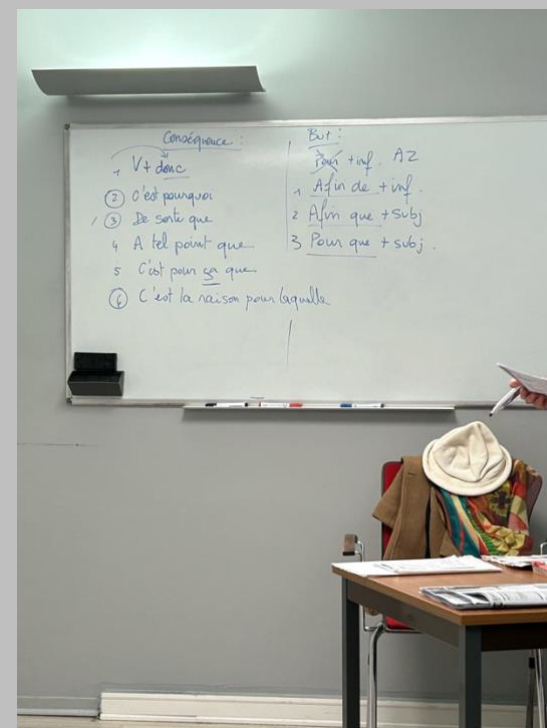 Conséquence :
1 V + donc
2 C'est pourquoi
3 De sorte que
4 A tel point que
5 C'est pour ça que
6 C'est la raison pour laquelle
But :
Pour + inf. A2
1 Afin de + inf.
2 Afin que + subj
3 Pour que + subj.